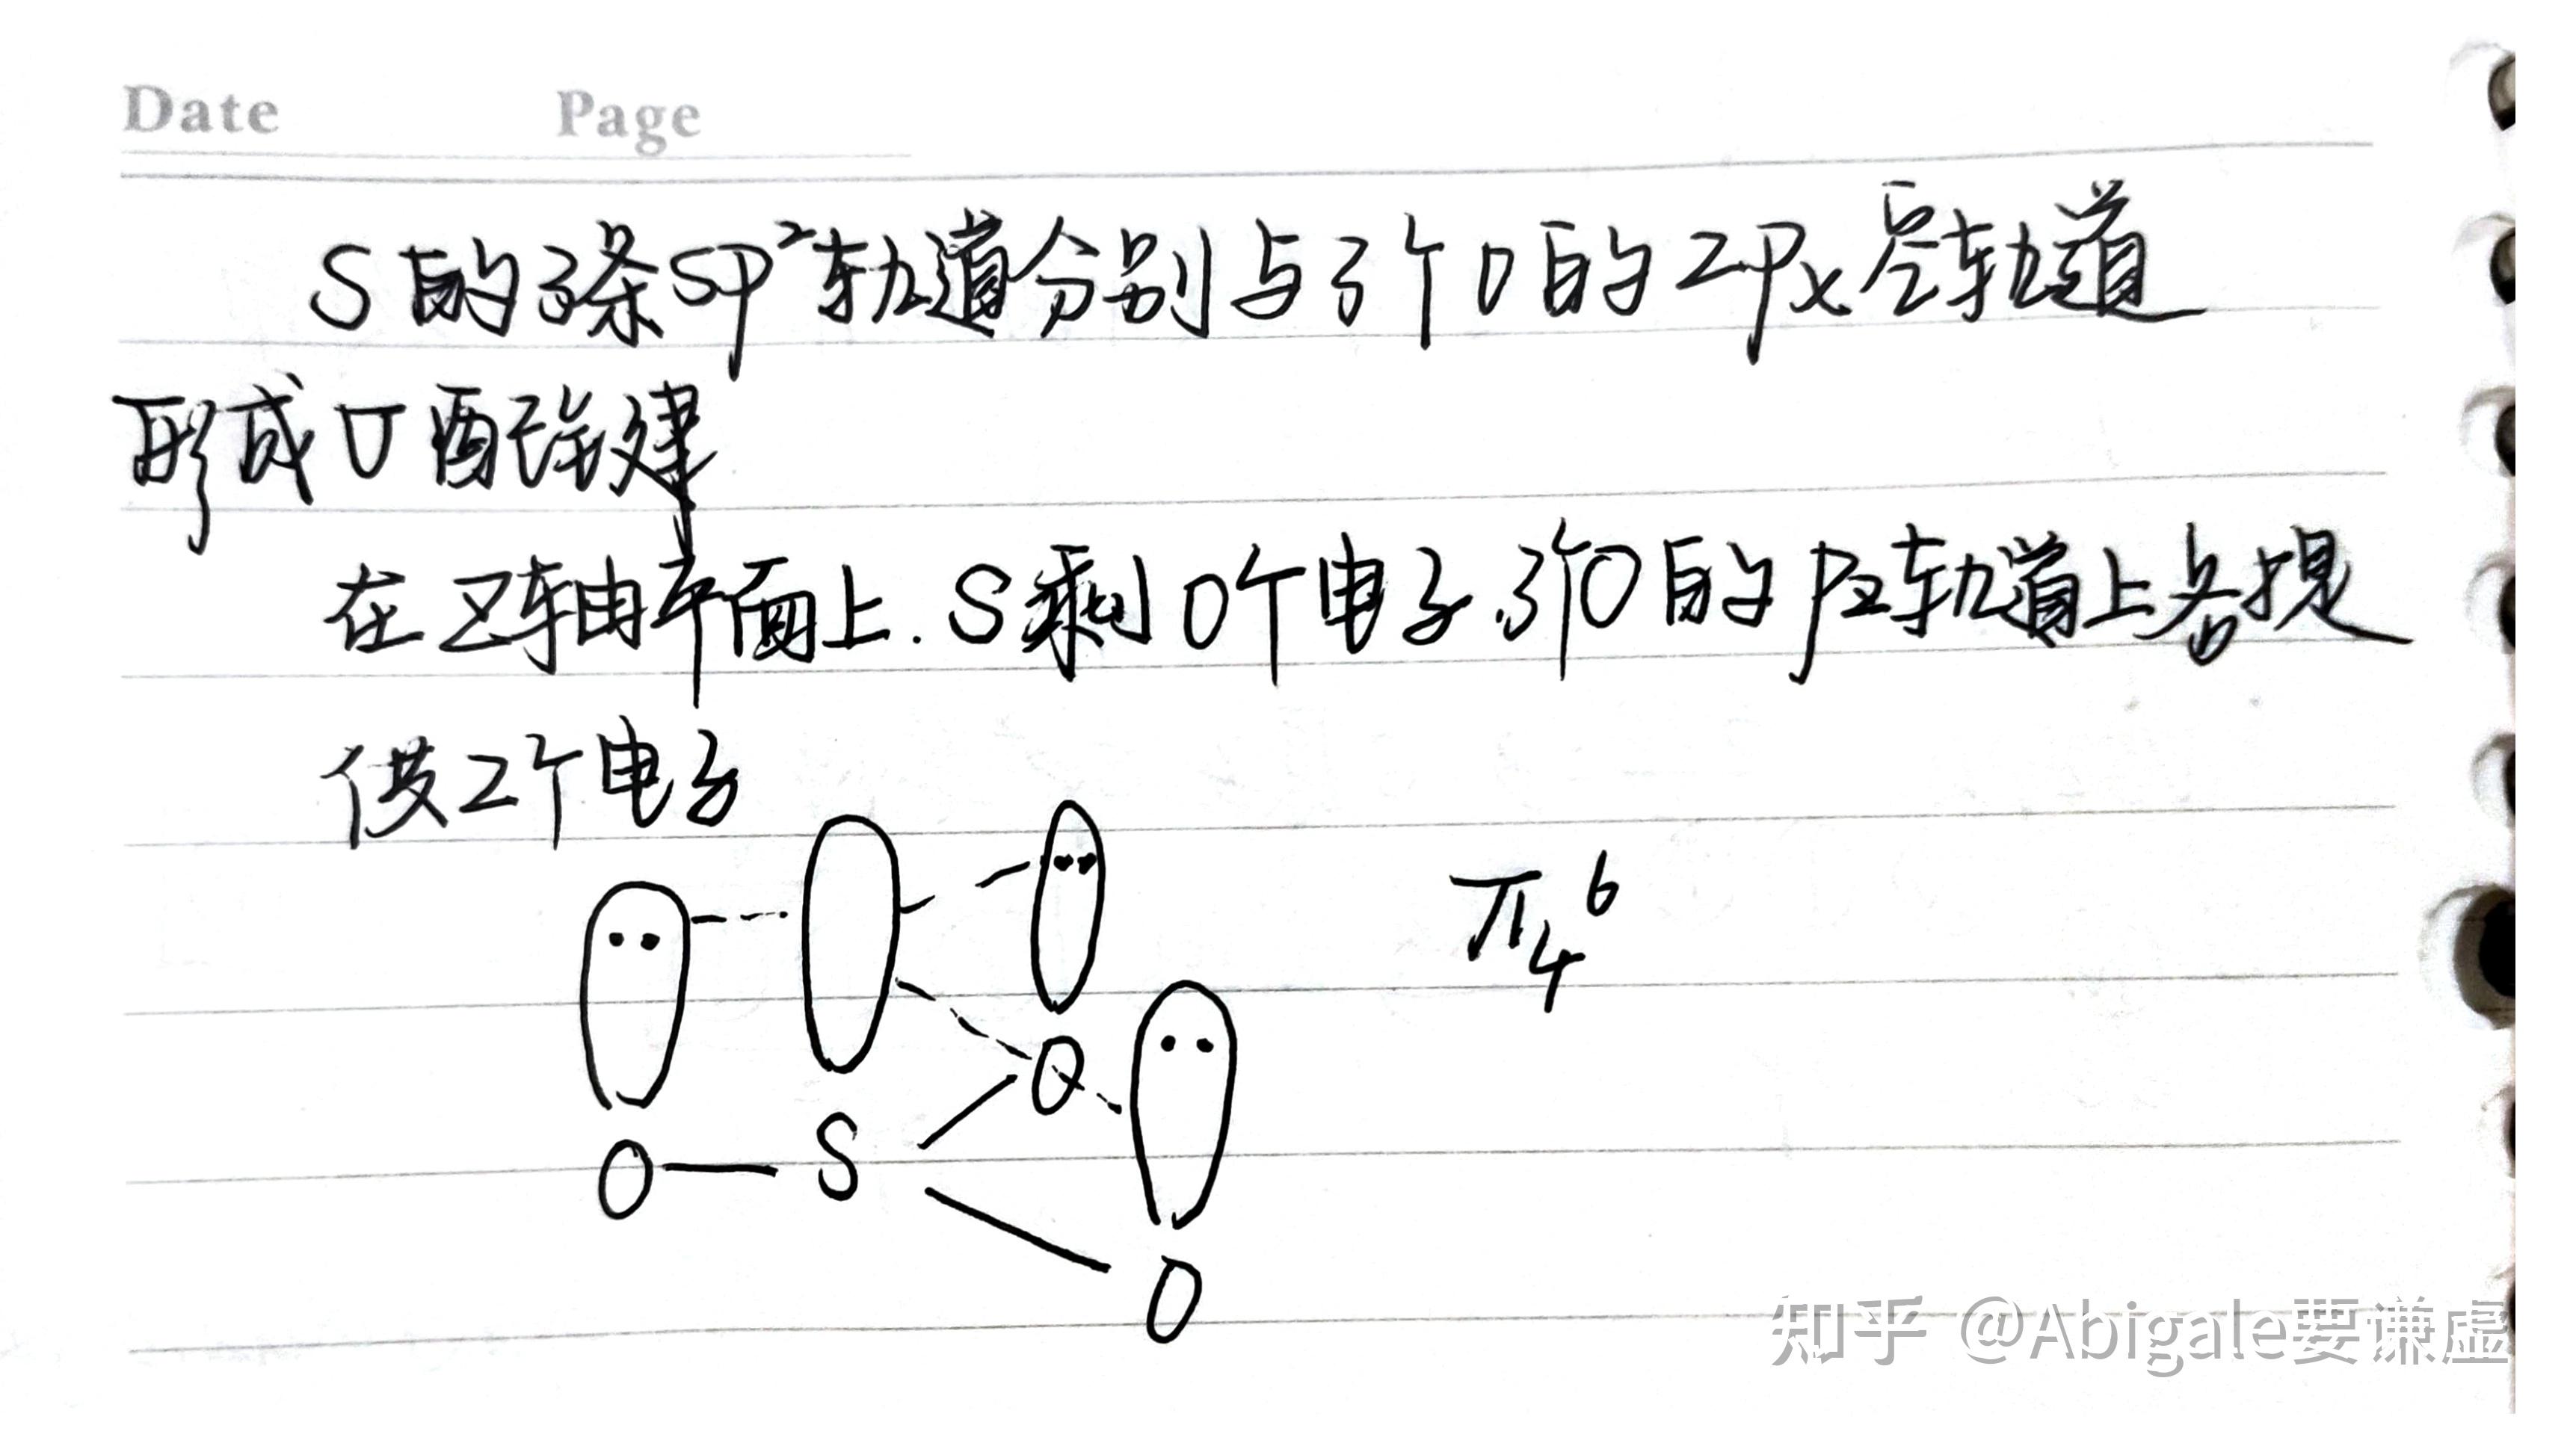 Date Page
S的3条sp²轨道分别与3个O的2Px空轨道
形成σ配位键
在Z轴平面上.S剩0个电子.3个O的Pz轨道上各提
供2个电子
π₄⁶
O
O S
O
知乎 @Abigale要谦虚